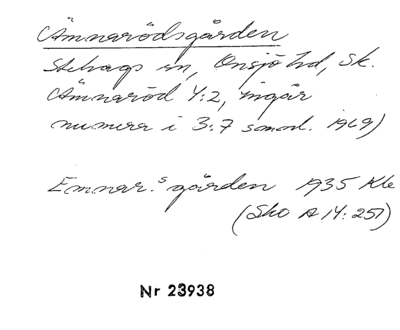 Ämnarödsgården
Stehags sn, Onsjö hd, Sk.
Ämnaröd 4:2, ingår
numera i 3:7 1969)
Emnar.s gården 1935 Kle
(Sko A 14: 251)
Nr 23938